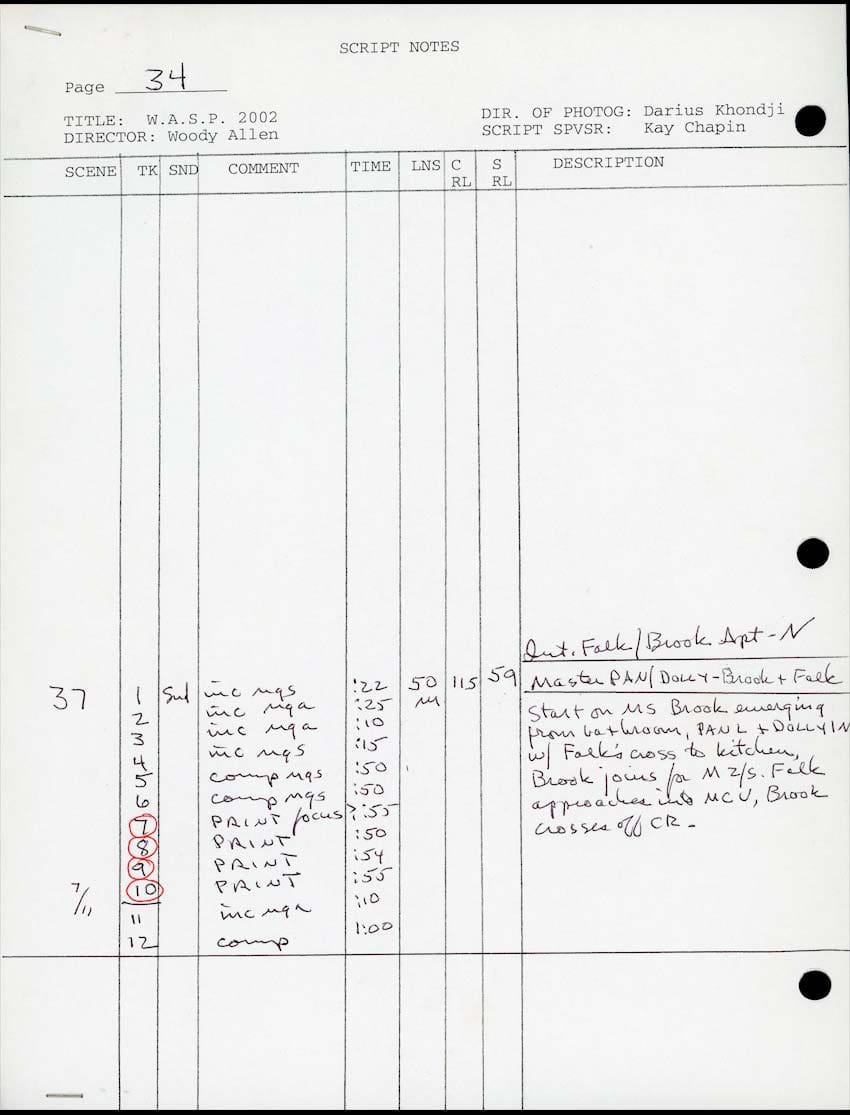 SCRIPT NOTES
Page 34
TITLE: W.A.S.P. 2002
DIRECTOR: Woody Allen
DIR. OF PHOTOG: Darius Khondji
SCRIPT SPVSR: Kay Chapin
SCENE TK SND COMMENT TIME LNS C RL S RL DESCRIPTION
Int. Falk/Brook Apt - N
Master PAN/DOLLY - Brook + Falk
37 1 Snd inc ngs :22 50 M 115 59
2 inc nga :25
3 inc nga :10
4 inc ngs :15
5 comp ngs :50
6 comp ngs :50
7 PRINT focus? :55
8 PRINT :50
9 PRINT :54
10 PRINT :55
7/11
11 inc nga :10
12 comp 1:00
Start on MS Brook emerging
from bathroom, PAN L + DOLLY IN
w/ Falk's cross to kitchen,
Brook joins for M 2/s. Falk
approaches into MCU, Brook
crosses off CR -